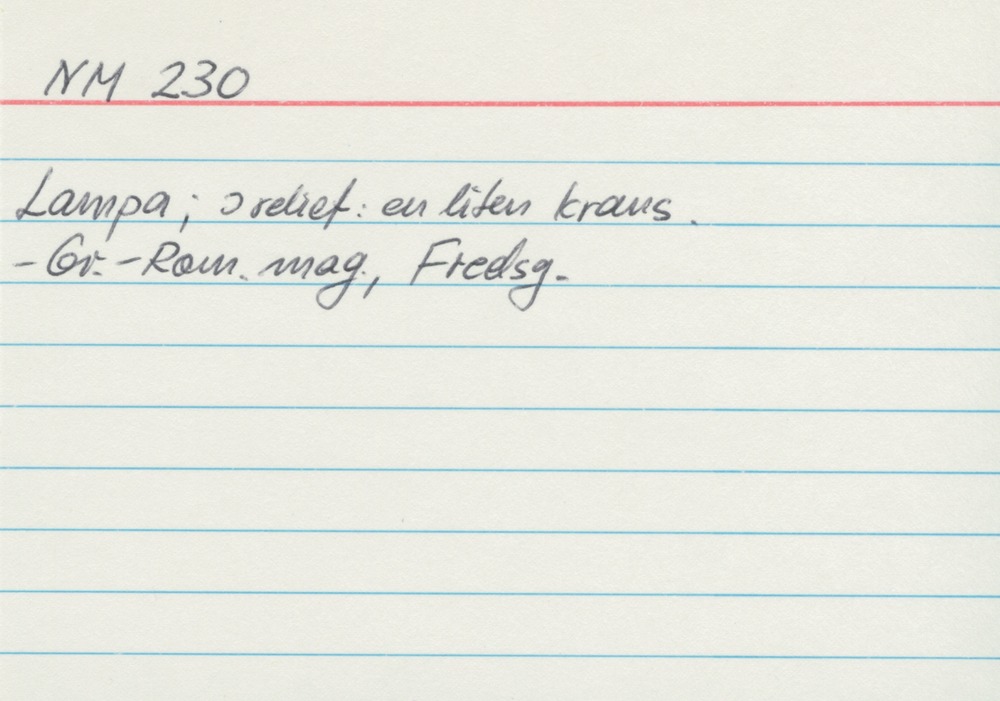 NM 230
Lampa; i relief: en liten krans.
-Gr.-Rom. mag., Fredsg.